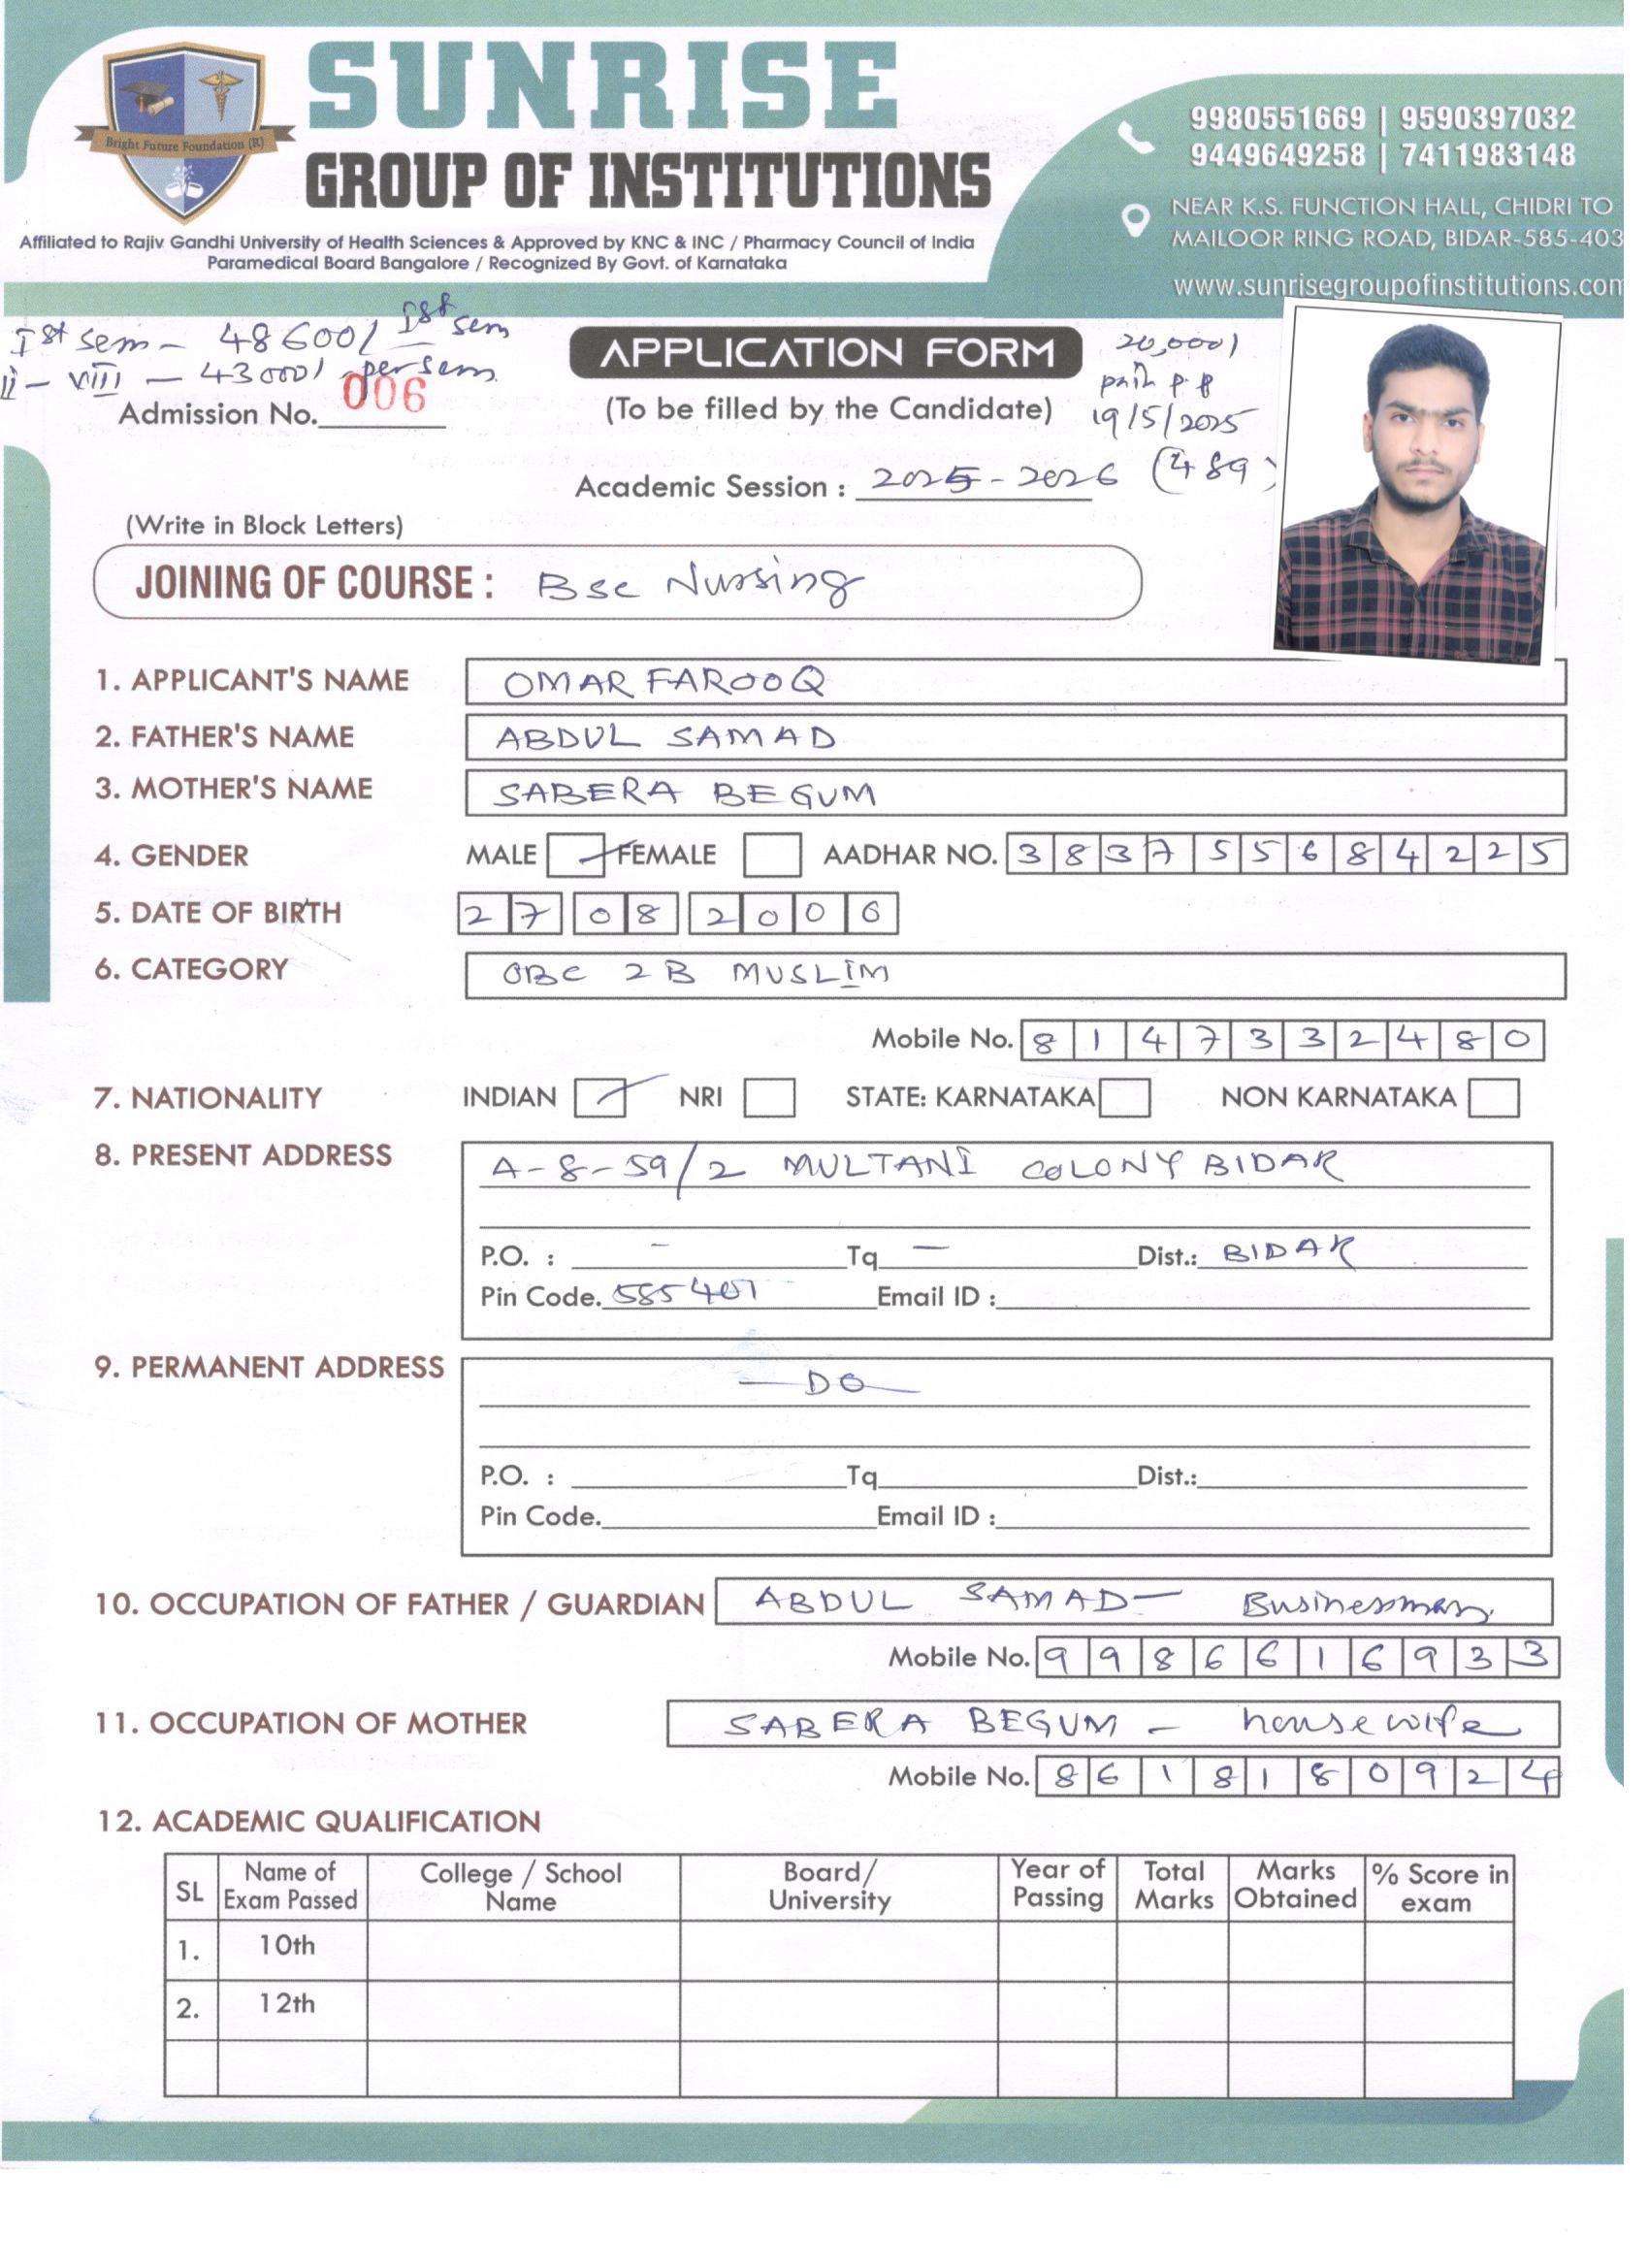 SUNRISE
GROUP OF INSTITUTIONS
Bright Future Foundation (R)
Affiliated to Rajiv Gandhi University of Health Sciences & Approved by KNC & INC / Pharmacy Council of India
Paramedical Board Bangalore / Recognized By Govt. of Karnataka
9980551669 | 9590397032
9449649258 | 7411983148
NEAR K.S. FUNCTION HALL, CHIDRI TO
MAILOOR RING ROAD, BIDAR-585-403
www.sunrisegroupofinstitutions.com
Ist sem - 48600/ Ist sem
II - VIII - 43000/ per sem
Admission No. 006
APPLICATION FORM
(To be filled by the Candidate)
20,000/
paid
19/5/2025
(489)
Academic Session : 2025-2026
(Write in Block Letters)
JOINING OF COURSE : Bsc Nursing
1. APPLICANT'S NAME OMAR FAROOQ
2. FATHER'S NAME ABDUL SAMAD
3. MOTHER'S NAME SABERA BEGUM
4. GENDER MALE FEMALE AADHAR NO. 383755684225
5. DATE OF BIRTH 27 08 2006
6. CATEGORY OBC 2B MUSLIM
Mobile No. 8147332480
7. NATIONALITY INDIAN NRI STATE: KARNATAKA NON KARNATAKA
8. PRESENT ADDRESS A-8-59/2 MULTANI COLONY BIDAR
P.O. : - Tq - Dist.: BIDAR
Pin Code. 585401 Email ID :
9. PERMANENT ADDRESS — DO —
P.O. : Tq Dist.:
Pin Code. Email ID :
10. OCCUPATION OF FATHER / GUARDIAN ABDUL SAMAD - Businessman
Mobile No. 9986616933
11. OCCUPATION OF MOTHER SABERA BEGUM - housewife
Mobile No. 8618180924
12. ACADEMIC QUALIFICATION
SL Name of Exam Passed College / School Name Board/ University Year of Passing Total Marks Marks Obtained % Score in exam
1. 10th
2. 12th